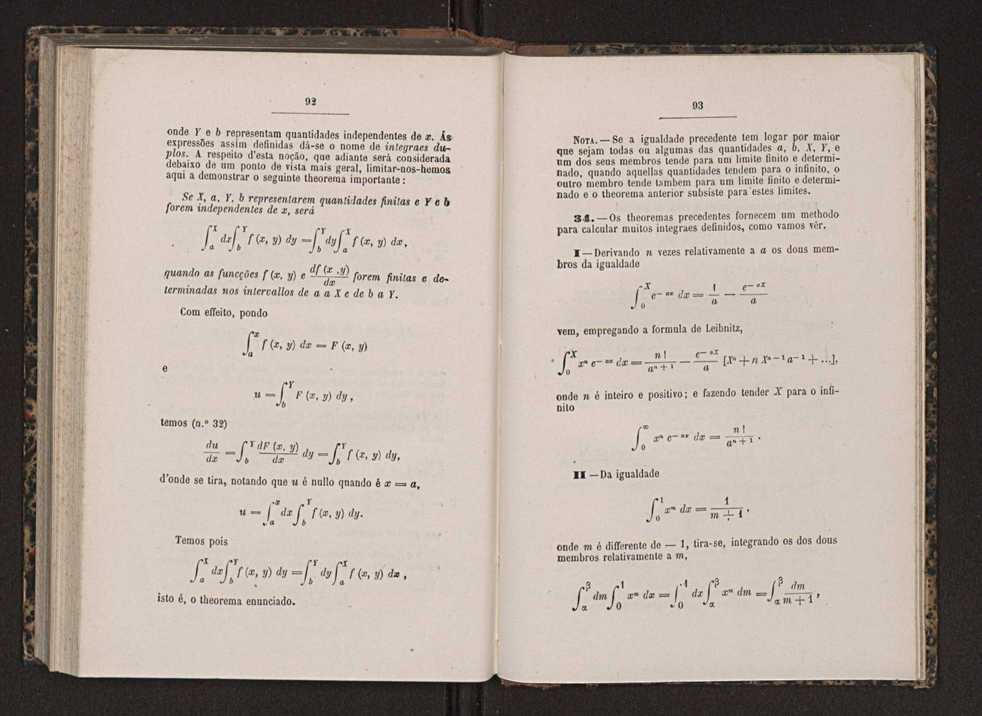 92
onde Y e b representam quantidades independentes de x. Ás
expressões assim definidas dá-se o nome de integraes du-
plos. A respeito d'esta noção, que adiante será considerada
debaixo de um ponto de vista mais geral, limitar-nos-hemos
aqui a demonstrar o seguinte theorema importante:
Se X, a, Y, b representarem quantidades finitas e Y e b
forem independentes de x, será
∫_a^X dx ∫_b^Y f (x, y) dy = ∫_b^Y dy ∫_a^X f (x, y) dx,
quando as funcções f (x, y) e df (x ,y)/dx forem finitas e de-
terminadas nos intervallos de a a X e de b a Y.
Com effeito, pondo
∫_a^x f (x, y) dx = F (x, y)
e
u = ∫_b^Y F (x, y) dy,
temos (n.º 32)
du/dx = ∫_b^Y dF (x, y)/dx dy = ∫_b^Y f (x, y) dy,
d'onde se tira, notando que u é nullo quando é x = a,
u = ∫_a^x dx ∫_b^Y f (x, y) dy.
Temos pois
∫_a^X dx ∫_b^Y f (x, y) dy = ∫_b^Y dy ∫_a^X f (x, y) dx,
isto é, o theorema enunciado.
93
NOTA.—Se a igualdade precedente tem logar por maior
que sejam todas ou algumas das quantidades a, b, X, Y, e
um dos seus membros tende para um limite finito e determi-
nado, quando aquellas quantidades tendem para o infinito, o
outro membro tende tambem para um limite finito e determi-
nado e o theorema anterior subsiste para estes limites.
34.—Os theoremas precedentes fornecem um methodo
para calcular muitos integraes definidos, como vamos vêr.
I—Derivando n vezes relativamente a a os dous mem-
bros da igualdade
∫_0^X e^{-ax} dx = 1/a − e^{-aX}/a
vem, empregando a formula de Leibnitz,
∫_0^X x^n e^{-ax} dx = n!/a^{n+1} − e^{-aX}/a [X^n + n X^{n-1} a^{-1} + ...],
onde n é inteiro e positivo; e fazendo tender X para o infi-
nito
∫_0^∞ x^n e^{-ax} dx = n!/a^{n+1}.
II—Da igualdade
∫_0^1 x^m dx = 1/(m + 1),
onde m é differente de — 1, tira-se, integrando os dos dous
membros relativamente a m,
∫_α^β dm ∫_0^1 x^m dx = ∫_0^1 dx ∫_α^β x^m dm = ∫_α^β dm/(m + 1),